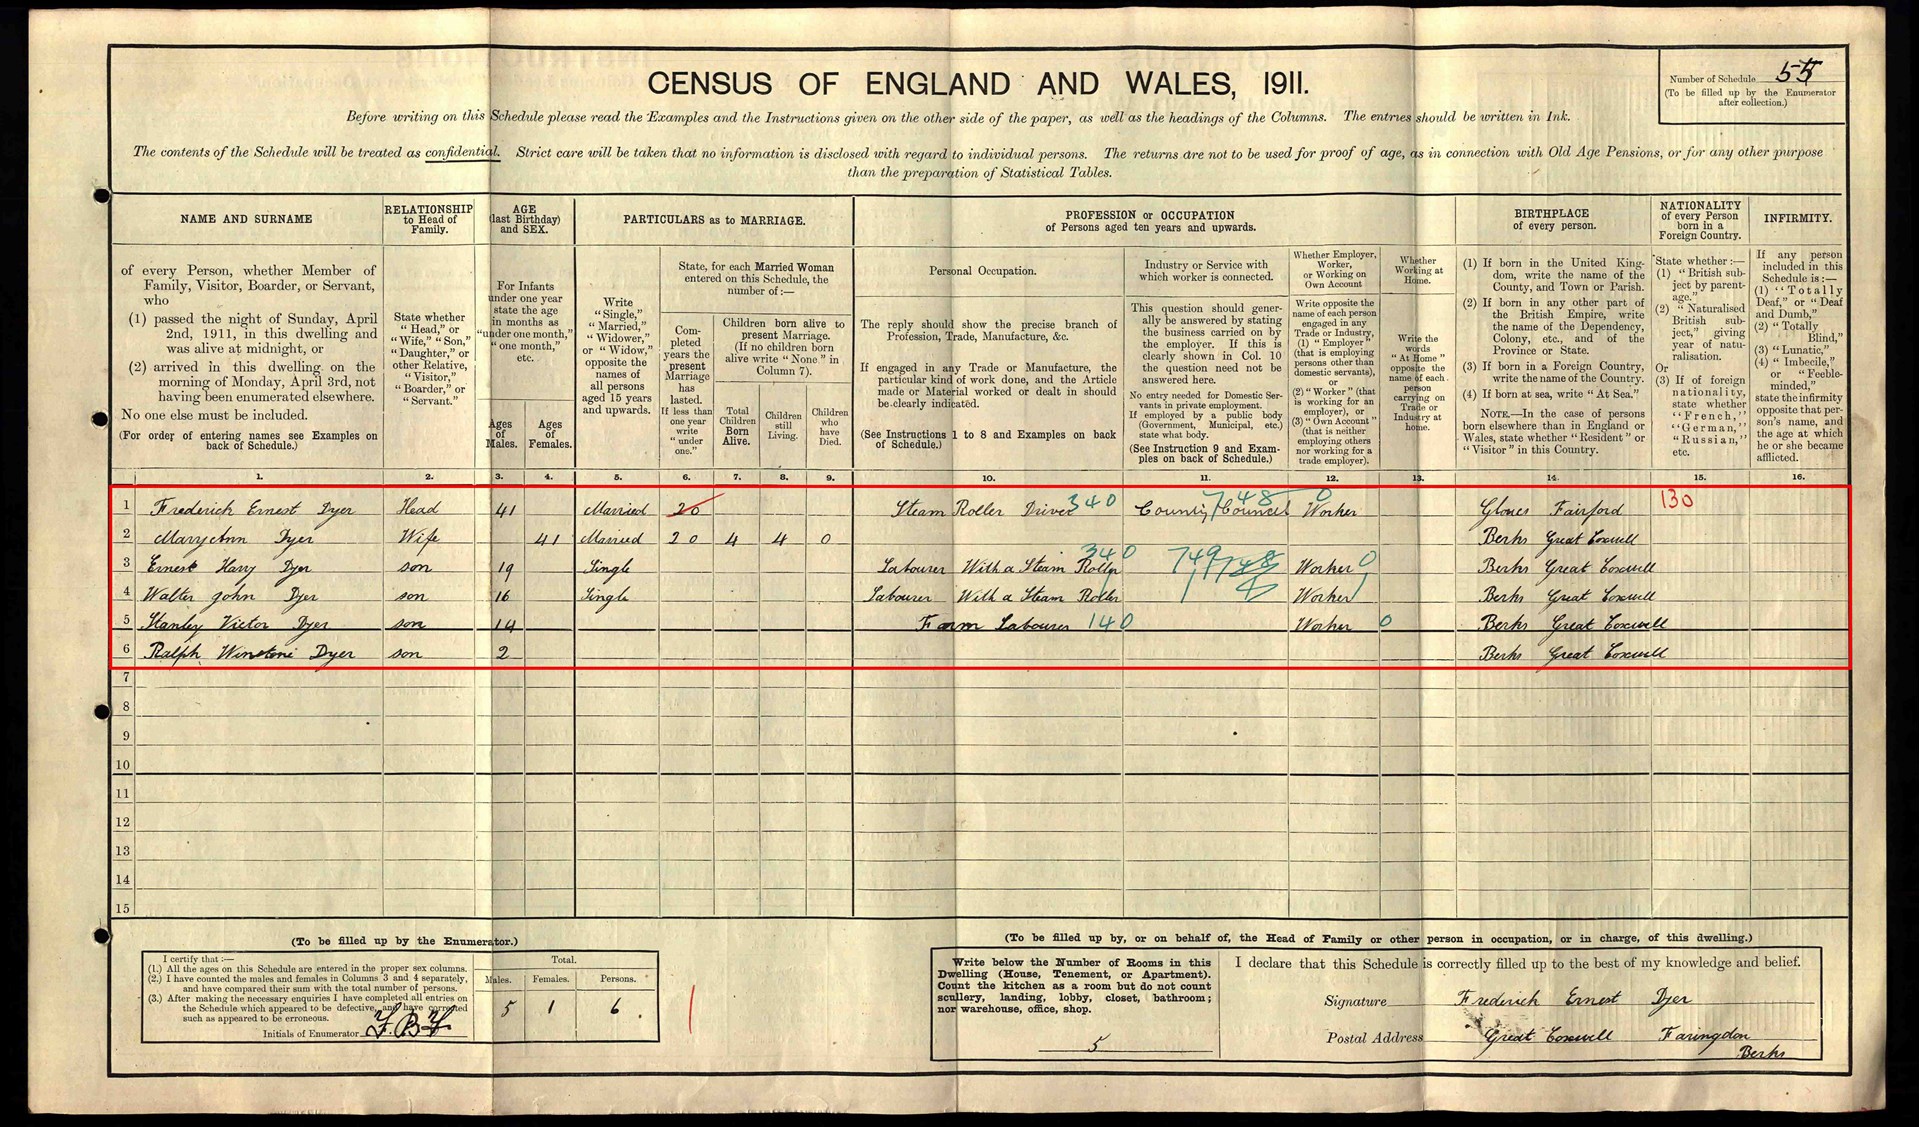 CENSUS OF ENGLAND AND WALES, 1911.
Number of Schedule 55
(To be filled up by the Enumerator
after collection.)
Before writing on this Schedule please read the Examples and the Instructions given on the other side of the paper, as well as the headings of the Columns. The entries should be written in Ink.
The contents of the Schedule will be treated as confidential. Strict care will be taken that no information is disclosed with regard to individual persons. The returns are not to be used for proof of age, as in connection with Old Age Pensions, or for any other purpose
than the preparation of Statistical Tables.
NAME AND SURNAME
of every Person, whether Member of
Family, Visitor, Boarder, or Servant,
who
(1) passed the night of Sunday, April
2nd, 1911, in this dwelling and
was alive at midnight, or
(2) arrived in this dwelling on the
morning of Monday, April 3rd, not
having been enumerated elsewhere.
No one else must be included.
(For order of entering names see Examples on
back of Schedule.)
RELATIONSHIP
to Head of
Family.
State whether
"Head," or
"Wife," "Son,"
"Daughter," or
other Relative,
"Visitor,"
"Boarder," or
"Servant."
AGE
(last Birthday)
and SEX.
For Infants
under one year
state the age
in months as
"under one month,"
"one month,"
etc.
Ages
of
Males.
Ages
of
Females.
PARTICULARS as to MARRIAGE.
Write
"Single,"
"Married,"
"Widower,"
or "Widow,"
opposite the
names of
all persons
aged 15 years
and upwards.
State, for each Married Woman
entered on this Schedule, the
number of:—
Com-
pleted
years the
present
Marriage
has
lasted.
If less than
one year
write
"under
one."
Children born alive to
present Marriage.
(If no children born
alive write "None" in
Column 7).
Total
Children
Born
Alive.
Children
still
Living.
Children
who
have
Died.
PROFESSION or OCCUPATION
of Persons aged ten years and upwards.
Personal Occupation.
The reply should show the precise branch of
Profession, Trade, Manufacture, &c.
If engaged in any Trade or Manufacture, the
particular kind of work done, and the Article
made or Material worked or dealt in should
be clearly indicated.
(See Instructions 1 to 8 and Examples on back
of Schedule.)
Industry or Service with
which worker is connected.
This question should gener-
ally be answered by stating
the business carried on by
the employer. If this is
clearly shown in Col. 10
the question need not be
answered here.
No entry needed for Domestic Ser-
vants in private employment.
If employed by a public body
(Government, Municipal, etc.)
state what body.
(See Instruction 9 and Exam-
ples on back of Schedule.)
Whether Employer,
Worker,
or Working on
Own Account
Write opposite the
name of each person
engaged in any
Trade or Industry,
(1) "Employer"
(that is employing
persons other than
domestic servants),
or
(2) "Worker" (that
is working for an
employer), or
(3) "Own Account"
(that is neither
employing others
nor working for a
trade employer).
Whether
Working at
Home.
Write the
words
"At Home"
opposite the
name of each
person
carrying on
Trade or
Industry at
home.
BIRTHPLACE
of every person.
(1) If born in the United King-
dom, write the name of the
County, and Town or Parish.
(2) If born in any other part of
the British Empire, write
the name of the Dependency,
Colony, etc., and of the
Province or State.
(3) If born in a Foreign Country,
write the name of the Country.
(4) If born at sea, write "At Sea."
NOTE.—In the case of persons
born elsewhere than in England or
Wales, state whether "Resident" or
"Visitor" in this Country.
NATIONALITY
of every Person
born in a
Foreign Country.
State whether:—
(1) "British sub-
ject by parent-
age."
(2) "Naturalised
British sub-
ject," giving
year of natu-
ralisation.
Or
(3) If of foreign
nationality,
state whether
"French,"
"German,"
"Russian,"
etc.
INFIRMITY.
If any person
included in this
Schedule is:—
(1) "Totally
Deaf," or "Deaf
and Dumb,"
(2) "Totally
Blind,"
(3) "Lunatic,"
(4) "Imbecile,"
or "Feeble-
minded,"
state the infirmity
opposite that per-
son's name, and
the age at which
he or she became
afflicted.
1. 2. 3. 4. 5. 6. 7. 8. 9. 10. 11. 12. 13. 14. 15. 16.
1 Frederick Ernest Dyer Head 41 Married 20 Steam Roller Driver 340 County Council 748 Worker 0 Glouces Fairford 130
2 Mary Ann Dyer Wife 41 Married 20 4 4 0 Berks Great Coxwell
3 Ernest Harry Dyer son 19 Single Labourer With a Steam Roller 340 749 748 Worker 0 Berks Great Coxwell
4 Walter John Dyer son 16 Single Labourer With a Steam Roller Worker Berks Great Coxwell
5 Stanley Victor Dyer son 14 Farm Labourer 140 Worker 0 Berks Great Coxwell
6 Ralph Dyer son 2 Berks Great Coxwell
7
8
9
10
11
12
13
14
15
(To be filled up by the Enumerator.)
I certify that:—
(1.) All the ages on this Schedule are entered in the proper sex columns.
(2.) I have counted the males and females in Columns 3 and 4 separately,
and have compared their sum with the total number of persons.
(3.) After making the necessary enquiries I have completed all entries on
the Schedule which appeared to be defective, and have corrected
such as appeared to be erroneous.
Initials of Enumerator F.B.F
Total.
Males. Females. Persons.
5 1 6
(To be filled up by, or on behalf of, the Head of Family or other person in occupation, or in charge, of this dwelling.)
Write below the Number of Rooms in this
Dwelling (House, Tenement, or Apartment).
Count the kitchen as a room but do not count
scullery, landing, lobby, closet, bathroom;
nor warehouse, office, shop.
5
I declare that this Schedule is correctly filled up to the best of my knowledge and belief.
Signature Frederick Ernest Dyer
Postal Address Great Coxwell Faringdon
Berks